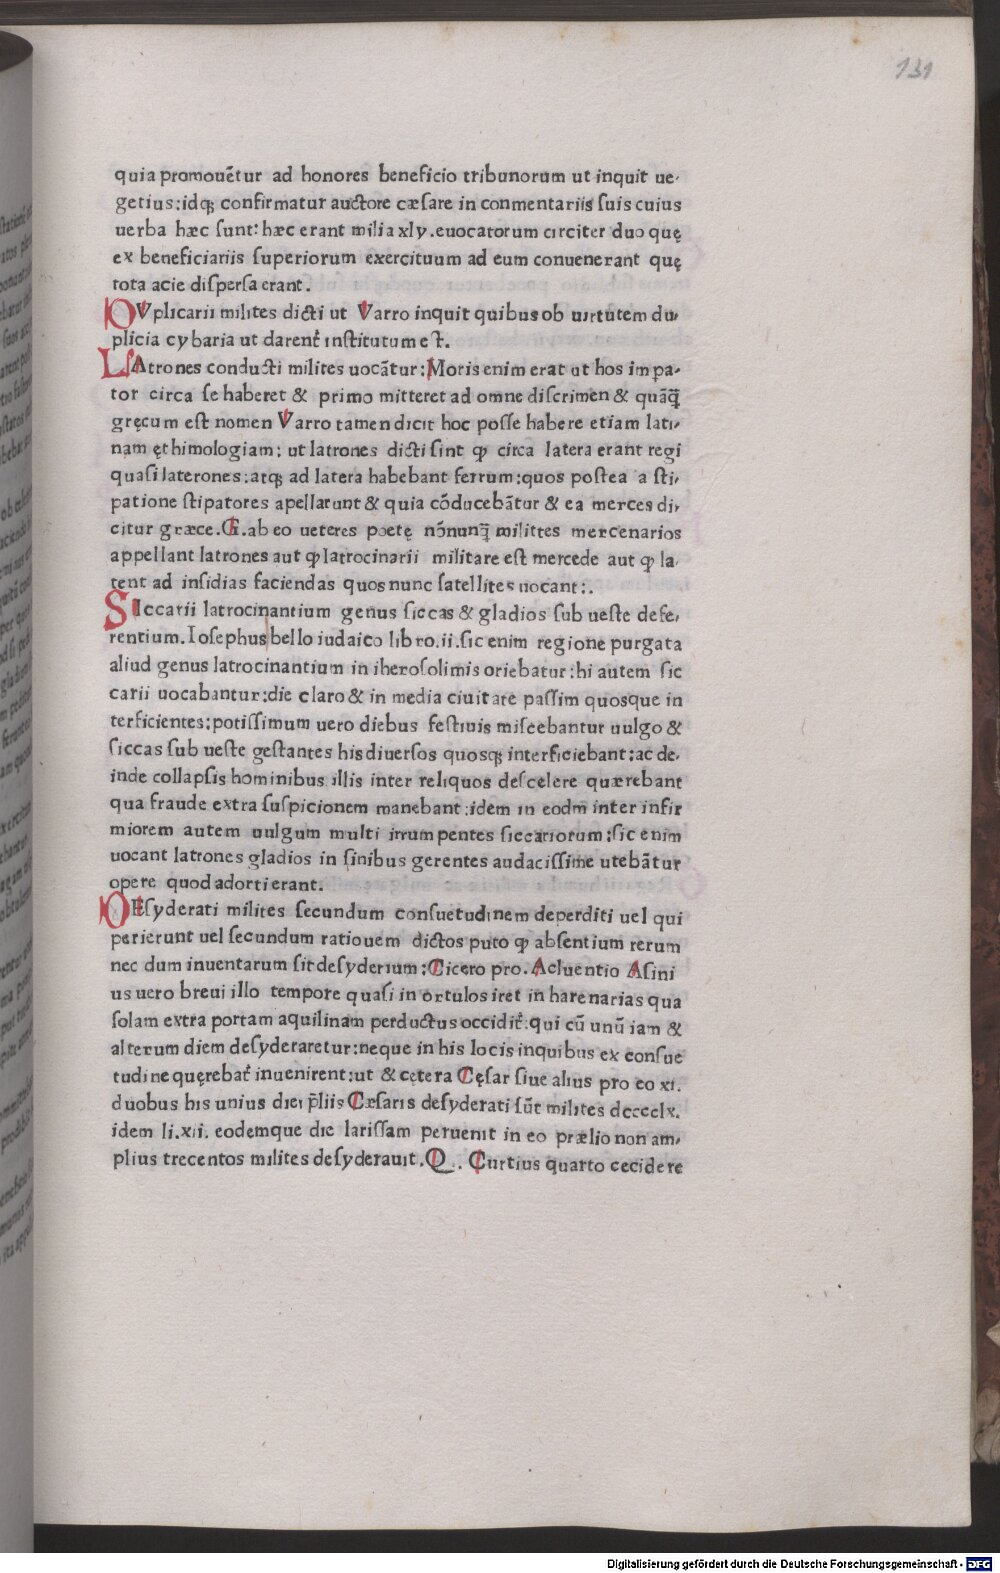 131
quia promouēt̄ur ad honores beneficio tribunorum ut inquit ue-
getius:idqꝫ confirmatur auctore cæsare in conmentariis suis cuius
uerba hæc sunt: hæc erant milia xlv.euocatorum circiter duo quę
ex beneficiariis superiorum exercituum ad eum conuenerant quę
tota acie dispersa erant.
DVplicarii milites dicti ut Varro inquit quibus ob uirtutem du-
plicia cybaria ut darent᷑ institutum est.
LAtrones conducti milites uocātur:Moris enim erat ut hos impa-
tor circa se haberet & primo mitteret ad omne discrimen & quāq̄
gręcum est nomen Varro tamen dicit hoc posse habere etiam lati-
nam ęthimologiam: ut latrones dicti sint ꝙ circa latera erant regi
quasi laterones:atqꝫ ad latera habebant ferrum:quos postea a sti-
patione stipatores apellarunt & quia cōducebātur & ea merces di-
citur græce.G.ab eo ueteres poetę nōnunq̄ milittes mercenarios
appellant latrones aut ꝙ latrocinarii militare est mercede aut ꝙ la-
tent ad insidias faciendas quos nunc satellites uocant:.
SIccarii latrocinantium genus siccas & gladios sub ueste defe-
rentium.Iosephus bello iudaico libro.ii.sic enim regione purgata
aliud genus latrocinantium in iherosolimis oriebatur:hi autem sic
carii uocabantur:die claro & in media ciuitate passim quosque in
terficientes:potissimum uero diebus festiuis misceebantur uulgo &
siccas sub ueste gestantes his diuersos quosqꝫ interficiebant:ac de-
inde collapsis hominibus illis inter reliquos descelere quærebant
qua fraude extra suspicionem manebant:idem in eodm̄ inter infir
miorem autem uulgum multi irrumpentes siccariorum:sic enim
uocant latrones gladios in sinibus gerentes audacissime utebātur
opere quod adorti erant.
DEsyderati milites secundum consuetudinem deperditi uel qui
perierunt uel secundum ratiouem dictos puto ꝙ absentium rerum
nec dum inuentarum sit desyderium:Cicero pro.Acluentio Asini
us uero breui illo tempore quasi in ortulos iret in harenarias qua
solam extra portam aquilinam perductus occidit᷑:qui cū unū iam &
alterum diem desyderaretur:neque in his locis inquibus ex consue
tudine quęrebat᷑ inuenirent:ut & cętera Cęsar siue alius pro eo xi.
duobus his unius diei p̄liis Cæsaris desyderati sūt milites dcccclx.
idem li.xii. eodemque die larissam peruenit in eo prælio non am-
plius trecentos milites desyderauit.Q.. Curtius quarto cecidere
Digitalisierung gefördert durch die Deutsche Forschungsgemeinschaft - DFG